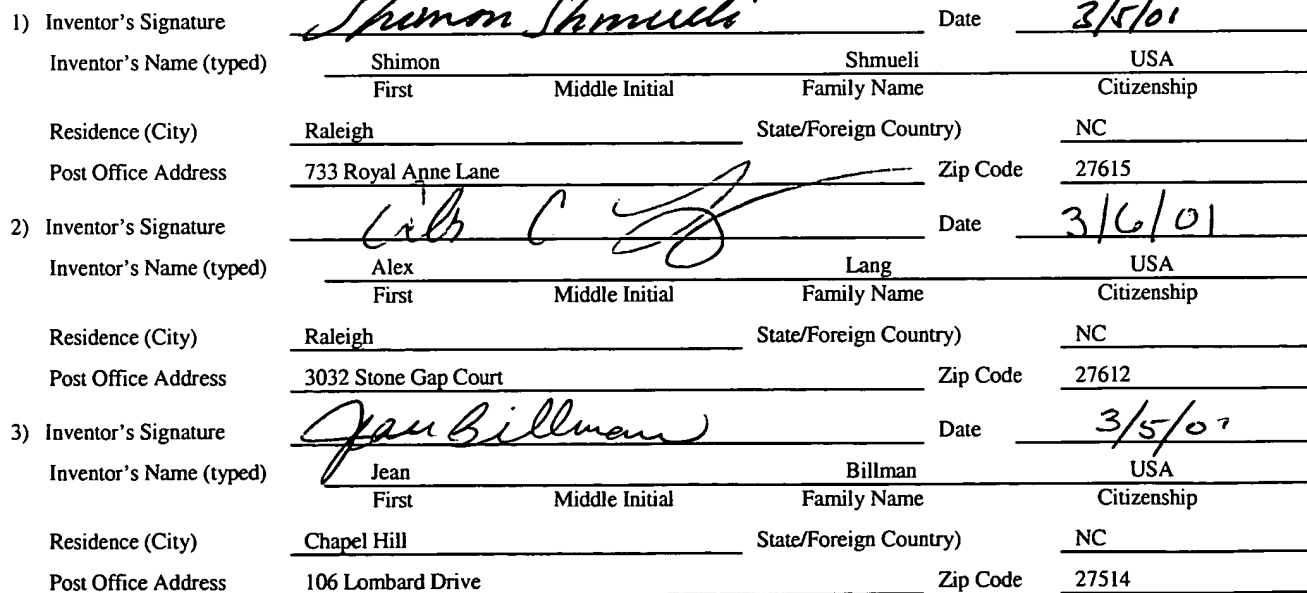 1) Inventor's Signature Shimon Shmueli Date 3/5/01
Inventor's Name (typed) Shimon Shmueli USA
First Middle Initial Family Name Citizenship
Residence (City) Raleigh State/Foreign Country) NC
Post Office Address 733 Royal Anne Lane Zip Code 27615
2) Inventor's Signature Date 3/6/01
Inventor's Name (typed) Alex Lang USA
First Middle Initial Family Name Citizenship
Residence (City) Raleigh State/Foreign Country) NC
Post Office Address 3032 Stone Gap Court Zip Code 27612
3) Inventor's Signature Jean Billman Date
Inventor's Name (typed) Jean Billman USA
First Middle Initial Family Name Citizenship
Residence (City) Chapel Hill State/Foreign Country) NC
Post Office Address 106 Lombard Drive Zip Code 27514